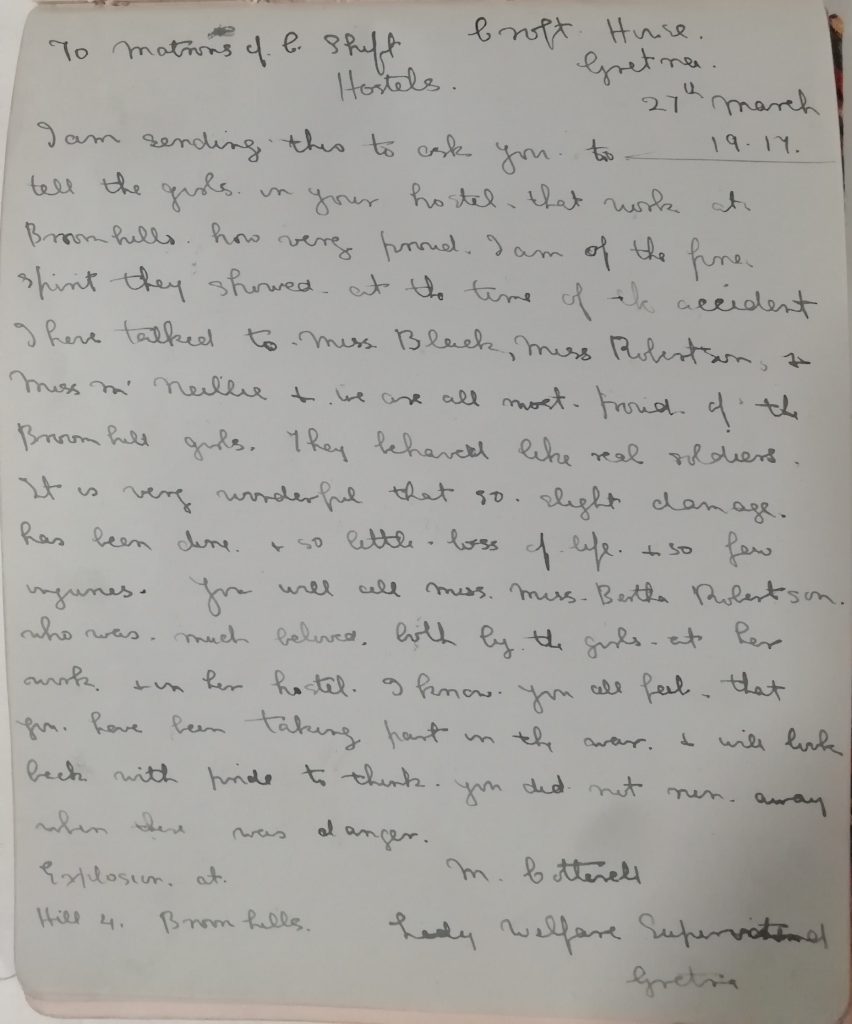 To Matrons of C. Shift Croft House.
Hostels. Gretna.
27th March
19.17.
I am sending this to ask you to
tell the girls in your hostel that work at
Broomhills how very proud I am of the fine
spirit they showed at the time of the accident
I have talked to Miss Black, Miss Robertson, &
Miss Mc Neillie & we are all most proud of the
Broomhill girls. They behaved like real soldiers.
It is very wonderful that so slight damage
has been done & so little loss of life & so few
injuries. You will all miss Miss Bertha Robertson
who was much beloved both by the girls at her
work & in her hostel. I know you all feel that
you have been taking part in the war & will look
back with pride to think you did not run away
when there was danger.
Explosion at M. Cotterell
Hill 4. Broomhills. Lady Welfare
Gretna